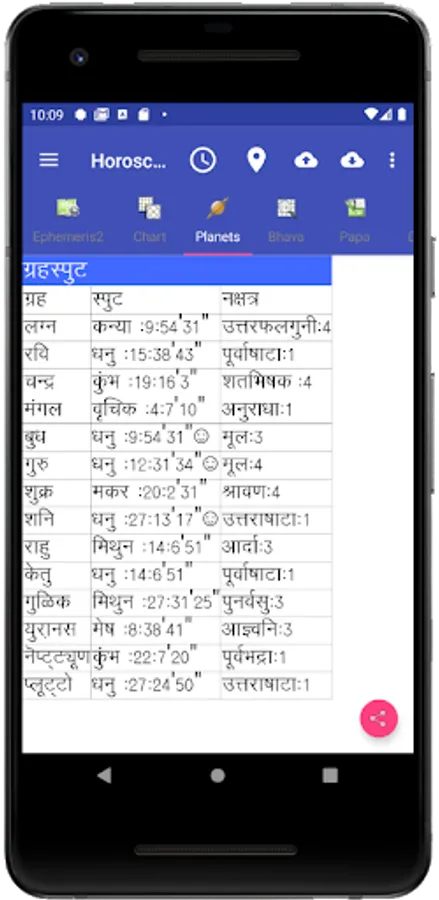 10:09
Horosc...
Ephemeris2 Chart Planets Bhava Papa
ग्रहस्पुट
ग्रह स्पुट नक्षत्र
लग्न कन्या :9:54'31" उत्तरफलगुनी:4
रवि धनु :15:38'43" पूर्वाषाटा:1
चन्द्र कुंभ :19:16'3" शतभिषक :4
मंगल वृचिक :4:7'10" अनुराधा:1
बुध धनु :9:54'31"☺ मूल:3
गुरु धनु :12:31'34"☺ मूल:4
शुक्र मकर :20:2'31" श्रावण:4
शनि धनु :27:13'17"☺ उत्तराषाटा:1
राहु मिथुन :14:6'51" आर्दा:3
केतु धनु :14:6'51" पूर्वाषाटा:1
गुळिक मिथुन :27:31'25" पुनर्वसु:3
युरानस मेष :8:38'41" आज्ञ्वनि:3
नेप्ट्ट्यूण कुंभ :22:7'20" पूर्वभद्रा:1
प्लूट्टो धनु :27:24'50" उत्तराषाटा:1